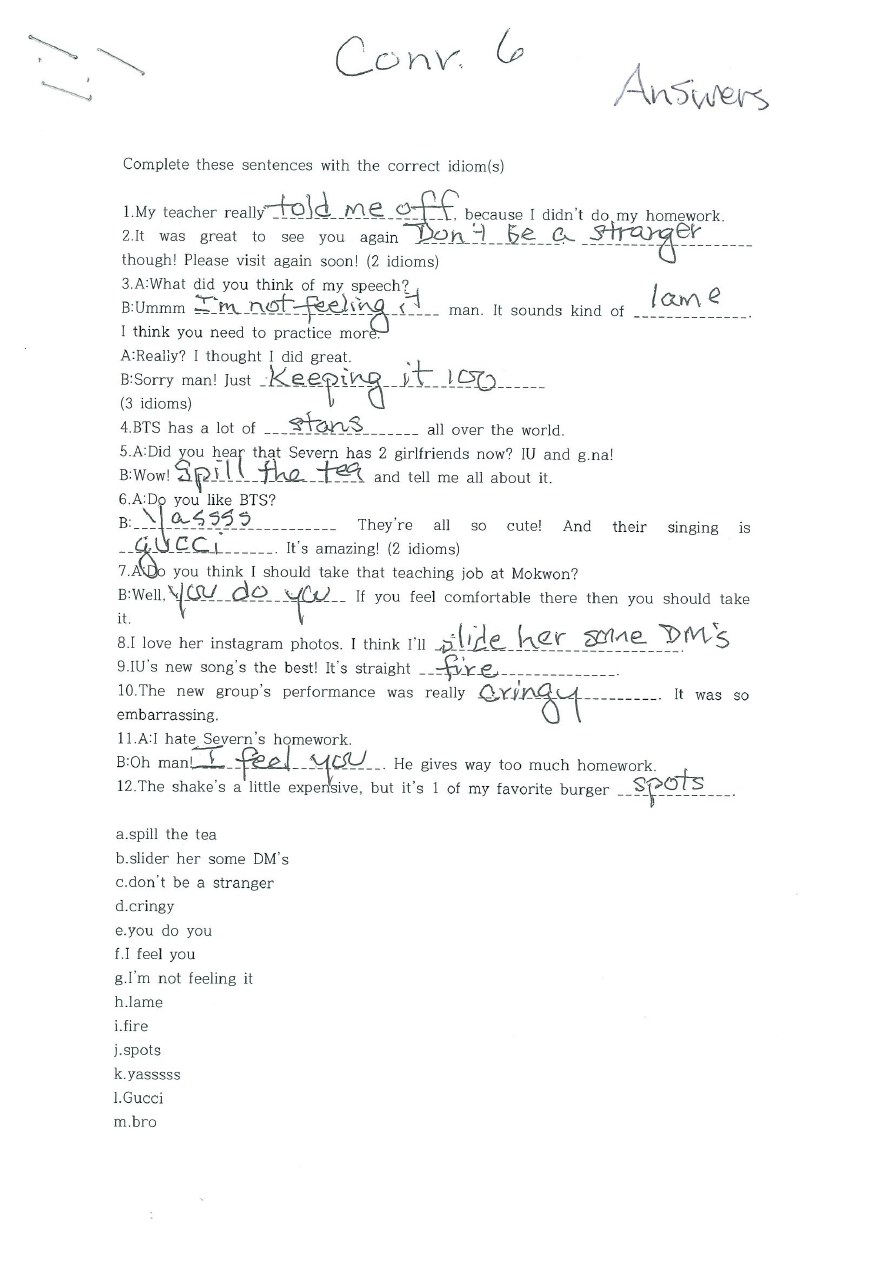 Conv. 6
Answers
Complete these sentences with the correct idiom(s)
1.My teacher really told me off, because I didn't do my homework.
2.It was great to see you again Don't be a stranger
though! Please visit again soon! (2 idioms)
3.A:What did you think of my speech?
B:Ummm I'm not feeling it man. It sounds kind of lame.
I think you need to practice more.
A:Really? I thought I did great.
B:Sorry man! Just Keeping it 100
(3 idioms)
4.BTS has a lot of stans all over the world.
5.A:Did you hear that Severn has 2 girlfriends now? IU and g.na!
B:Wow! Spill the tea and tell me all about it.
6.A:Do you like BTS?
B: Yassss They're all so cute! And their singing is
gucci. It's amazing! (2 idioms)
7.A:Do you think I should take that teaching job at Mokwon?
B:Well, you do you If you feel comfortable there then you should take
it.
8.I love her instagram photos. I think I'll slide her some DM's.
9.IU's new song's the best! It's straight fire.
10.The new group's performance was really cringy. It was so
embarrassing.
11.A:I hate Severn's homework.
B:Oh man! I feel you. He gives way too much homework.
12.The shake's a little expensive, but it's 1 of my favorite burger spots.
a.spill the tea
b.slider her some DM's
c.don't be a stranger
d.cringy
e.you do you
f.I feel you
g.I'm not feeling it
h.lame
i.fire
j.spots
k.yasssss
l.Gucci
m.bro